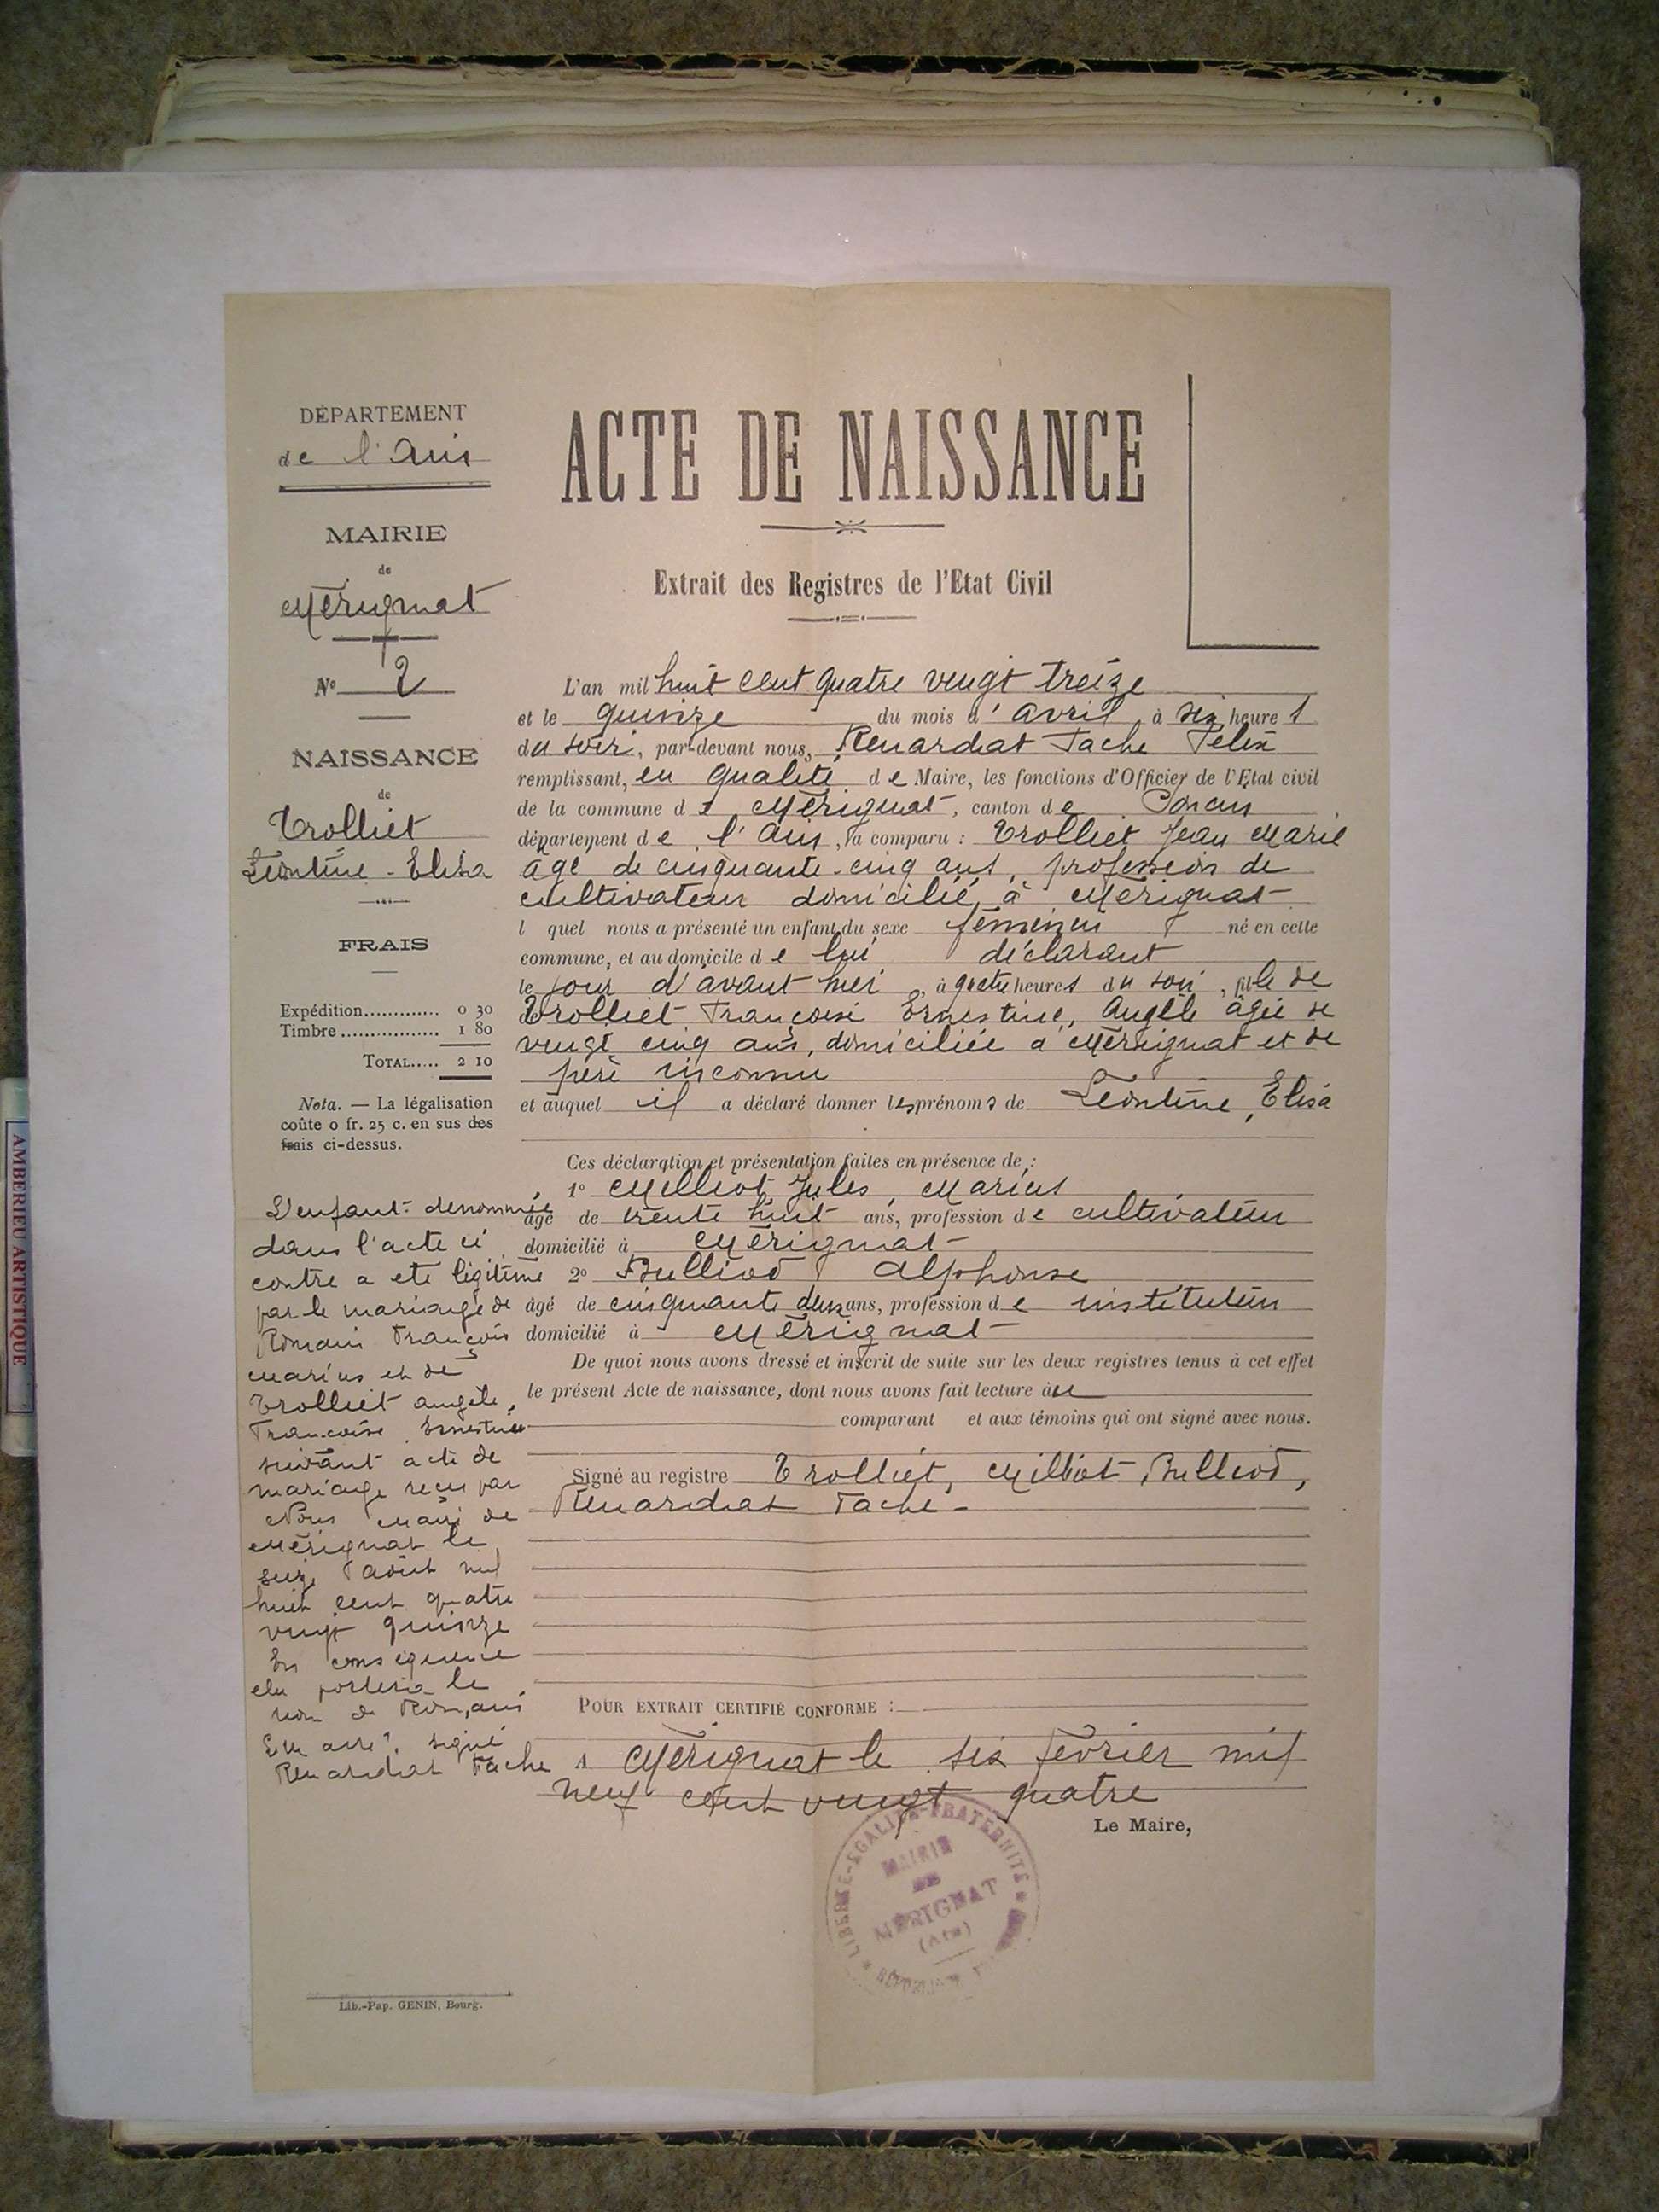 DÉPARTEMENT
de l'Ain
MAIRIE
de
Mérignat
N° 2
NAISSANCE
de
Trolliet
Léontine - Elisa
FRAIS
Expédition............. 0 30
Timbre................. 1 80
TOTAL..... 2 10
Nota. — La légalisation
coûte 0 fr. 25 c. en sus des
frais ci-dessus.
L'enfant dénommée
dans l'acte ci
contre a été légitimé
par le mariage de
Romain François
Marius et de
Trolliet Angèle,
Françoise Ernestine
suivant acte de
mariage reçu par
Nous Maire de
Mérignat le
seize août mil
huit cent quatre
vingt quinze
En conséquence
elle portera le
nom de Romain
signé
Renardat Tache
ACTE DE NAISSANCE
Extrait des Registres de l'Etat Civil
L'an mil huit cent quatre vingt treize
et le quinze du mois d'avril, à six heures
du soir, par-devant nous, Renardat Tache Félix
remplissant, en qualité de Maire, les fonctions d'Officier de l'Etat civil
de la commune de Mérignat, canton de Poncin
département de l'Ain, a comparu : Trolliet Jean Marie
âgé de cinquante-cinq ans, profession de
cultivateur domicilié à Mérignat
l quel nous a présenté un enfant du sexe féminin né en cette
commune, et au domicile de lui déclarant
le jour d'avant hier, à quatre heures du soir, fille de
Trolliet Françoise Ernestine, Angèle âgée de
vingt cinq ans, domiciliée à Mérignat et de
père inconnu
et auquel il a déclaré donner les prénoms de Léontine, Elisa
Ces déclaration et présentation faites en présence de :
1° Milliot Jules, Marius
âgé de trente huit ans, profession de cultivateur
domicilié à Mérignat
2° Bulliod Alphonse
âgé de cinquante deux ans, profession de instituteur
domicilié à Mérignat
De quoi nous avons dressé et inscrit de suite sur les deux registres tenus à cet effet
le présent Acte de naissance, dont nous avons fait lecture au
comparant et aux témoins qui ont signé avec nous.
Signé au registre Trolliet, Milliot, Bulliod,
Renardat Tache -
POUR EXTRAIT CERTIFIÉ CONFORME :
à Mérignat le six février mil
neuf cent vingt quatre
Le Maire,
LIBERTÉ-EGALITÉ-FRATERNITÉ
MAIRIE
DE
MÉRIGNAT
(Ain)
Lib.-Pap. GENIN, Bourg.
AMBERIEU ARTISTIQUE